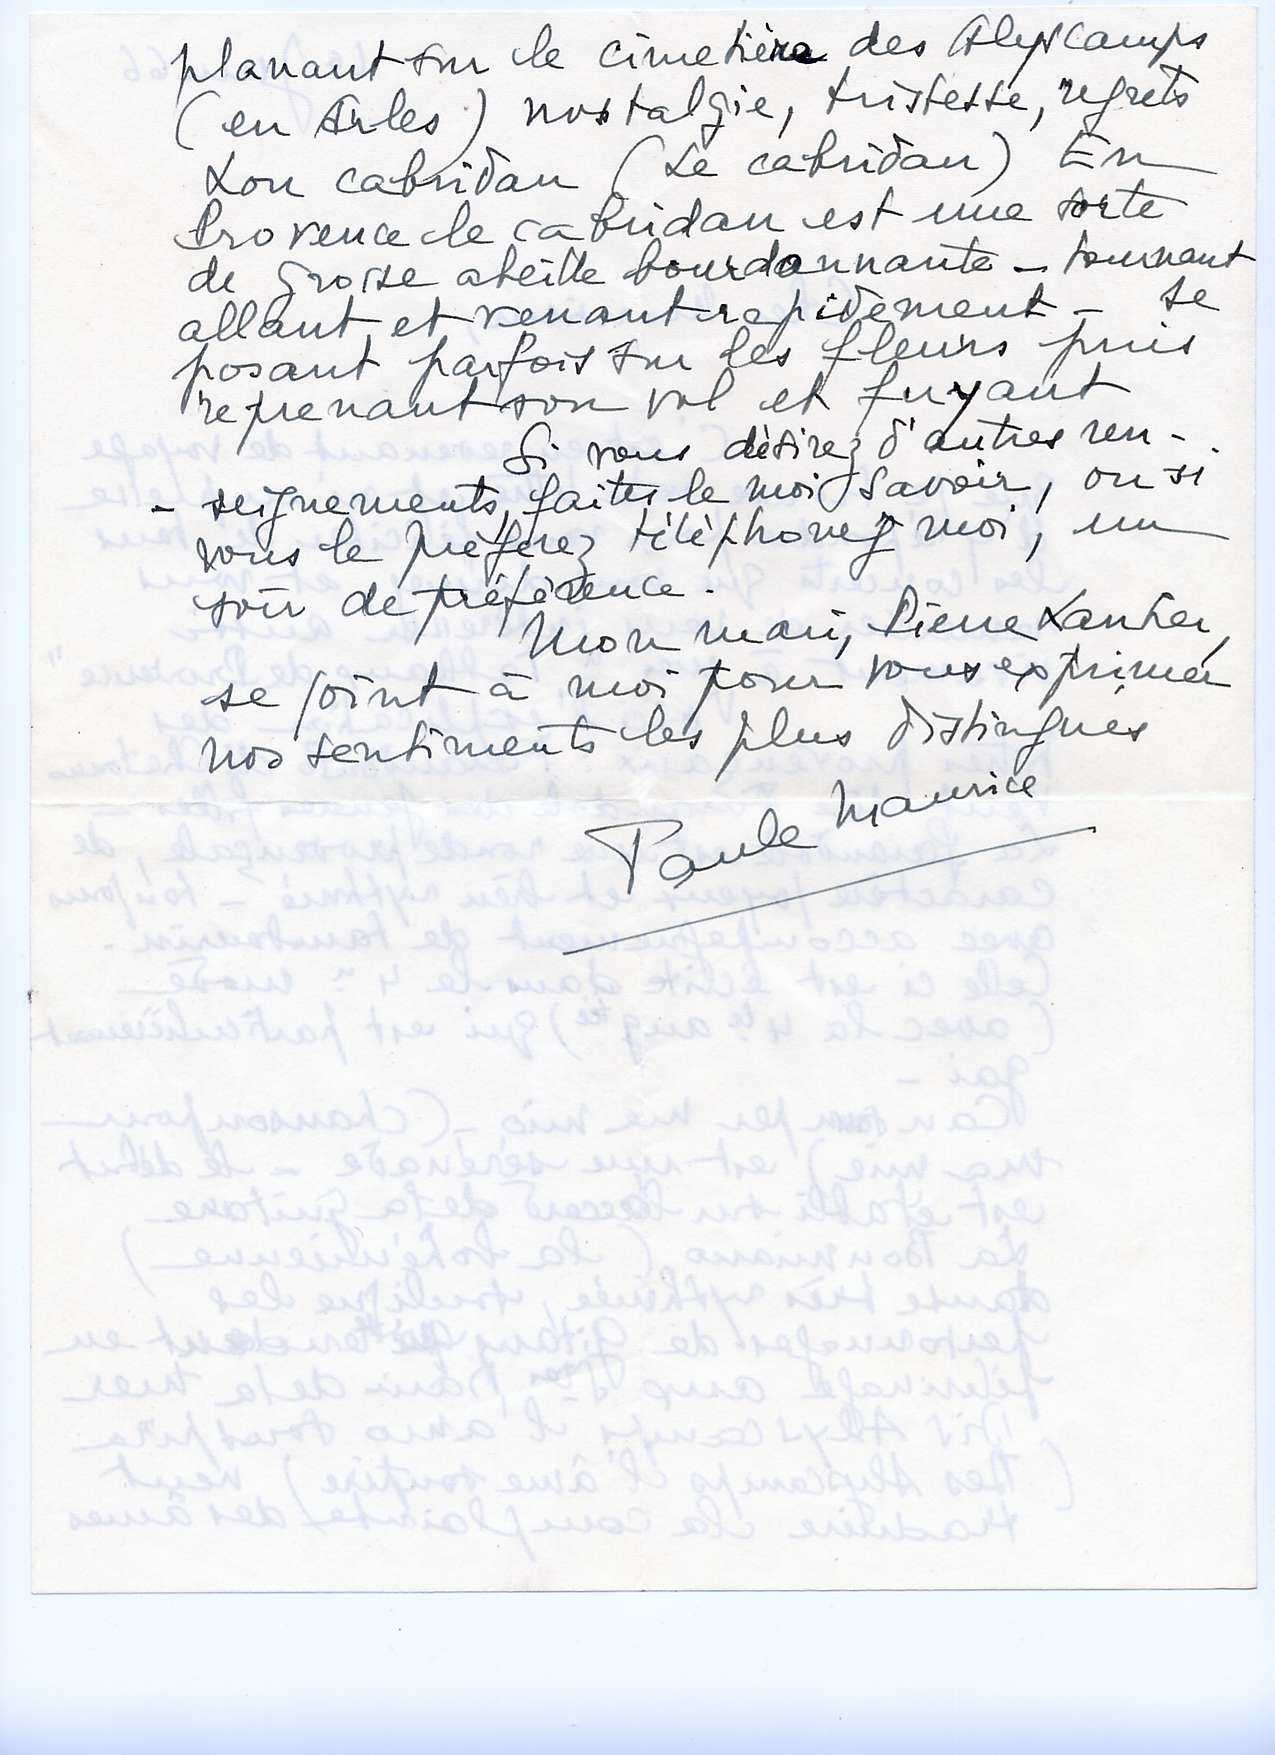 planant sur le cimetière des Alyscamps
(en Arles) nostalgie, tristesse, regrets
Lou cabridan (Le cabridan) En
Provence le cabridan est une sorte
de grosse abeille bourdonnante - tournant
allant et venant rapidement - se
posant parfois sur les fleurs puis
reprenant son vol et fuyant
Si vous désirez d'autres ren-
- seignements, faites le moi savoir, ou si
vous le préférez téléphonez moi, un
soir de préférence.
Mon mari, Pierre Lantier,
se joint à moi pour vous exprimer
nos sentiments les plus distingués
Paule Maurice